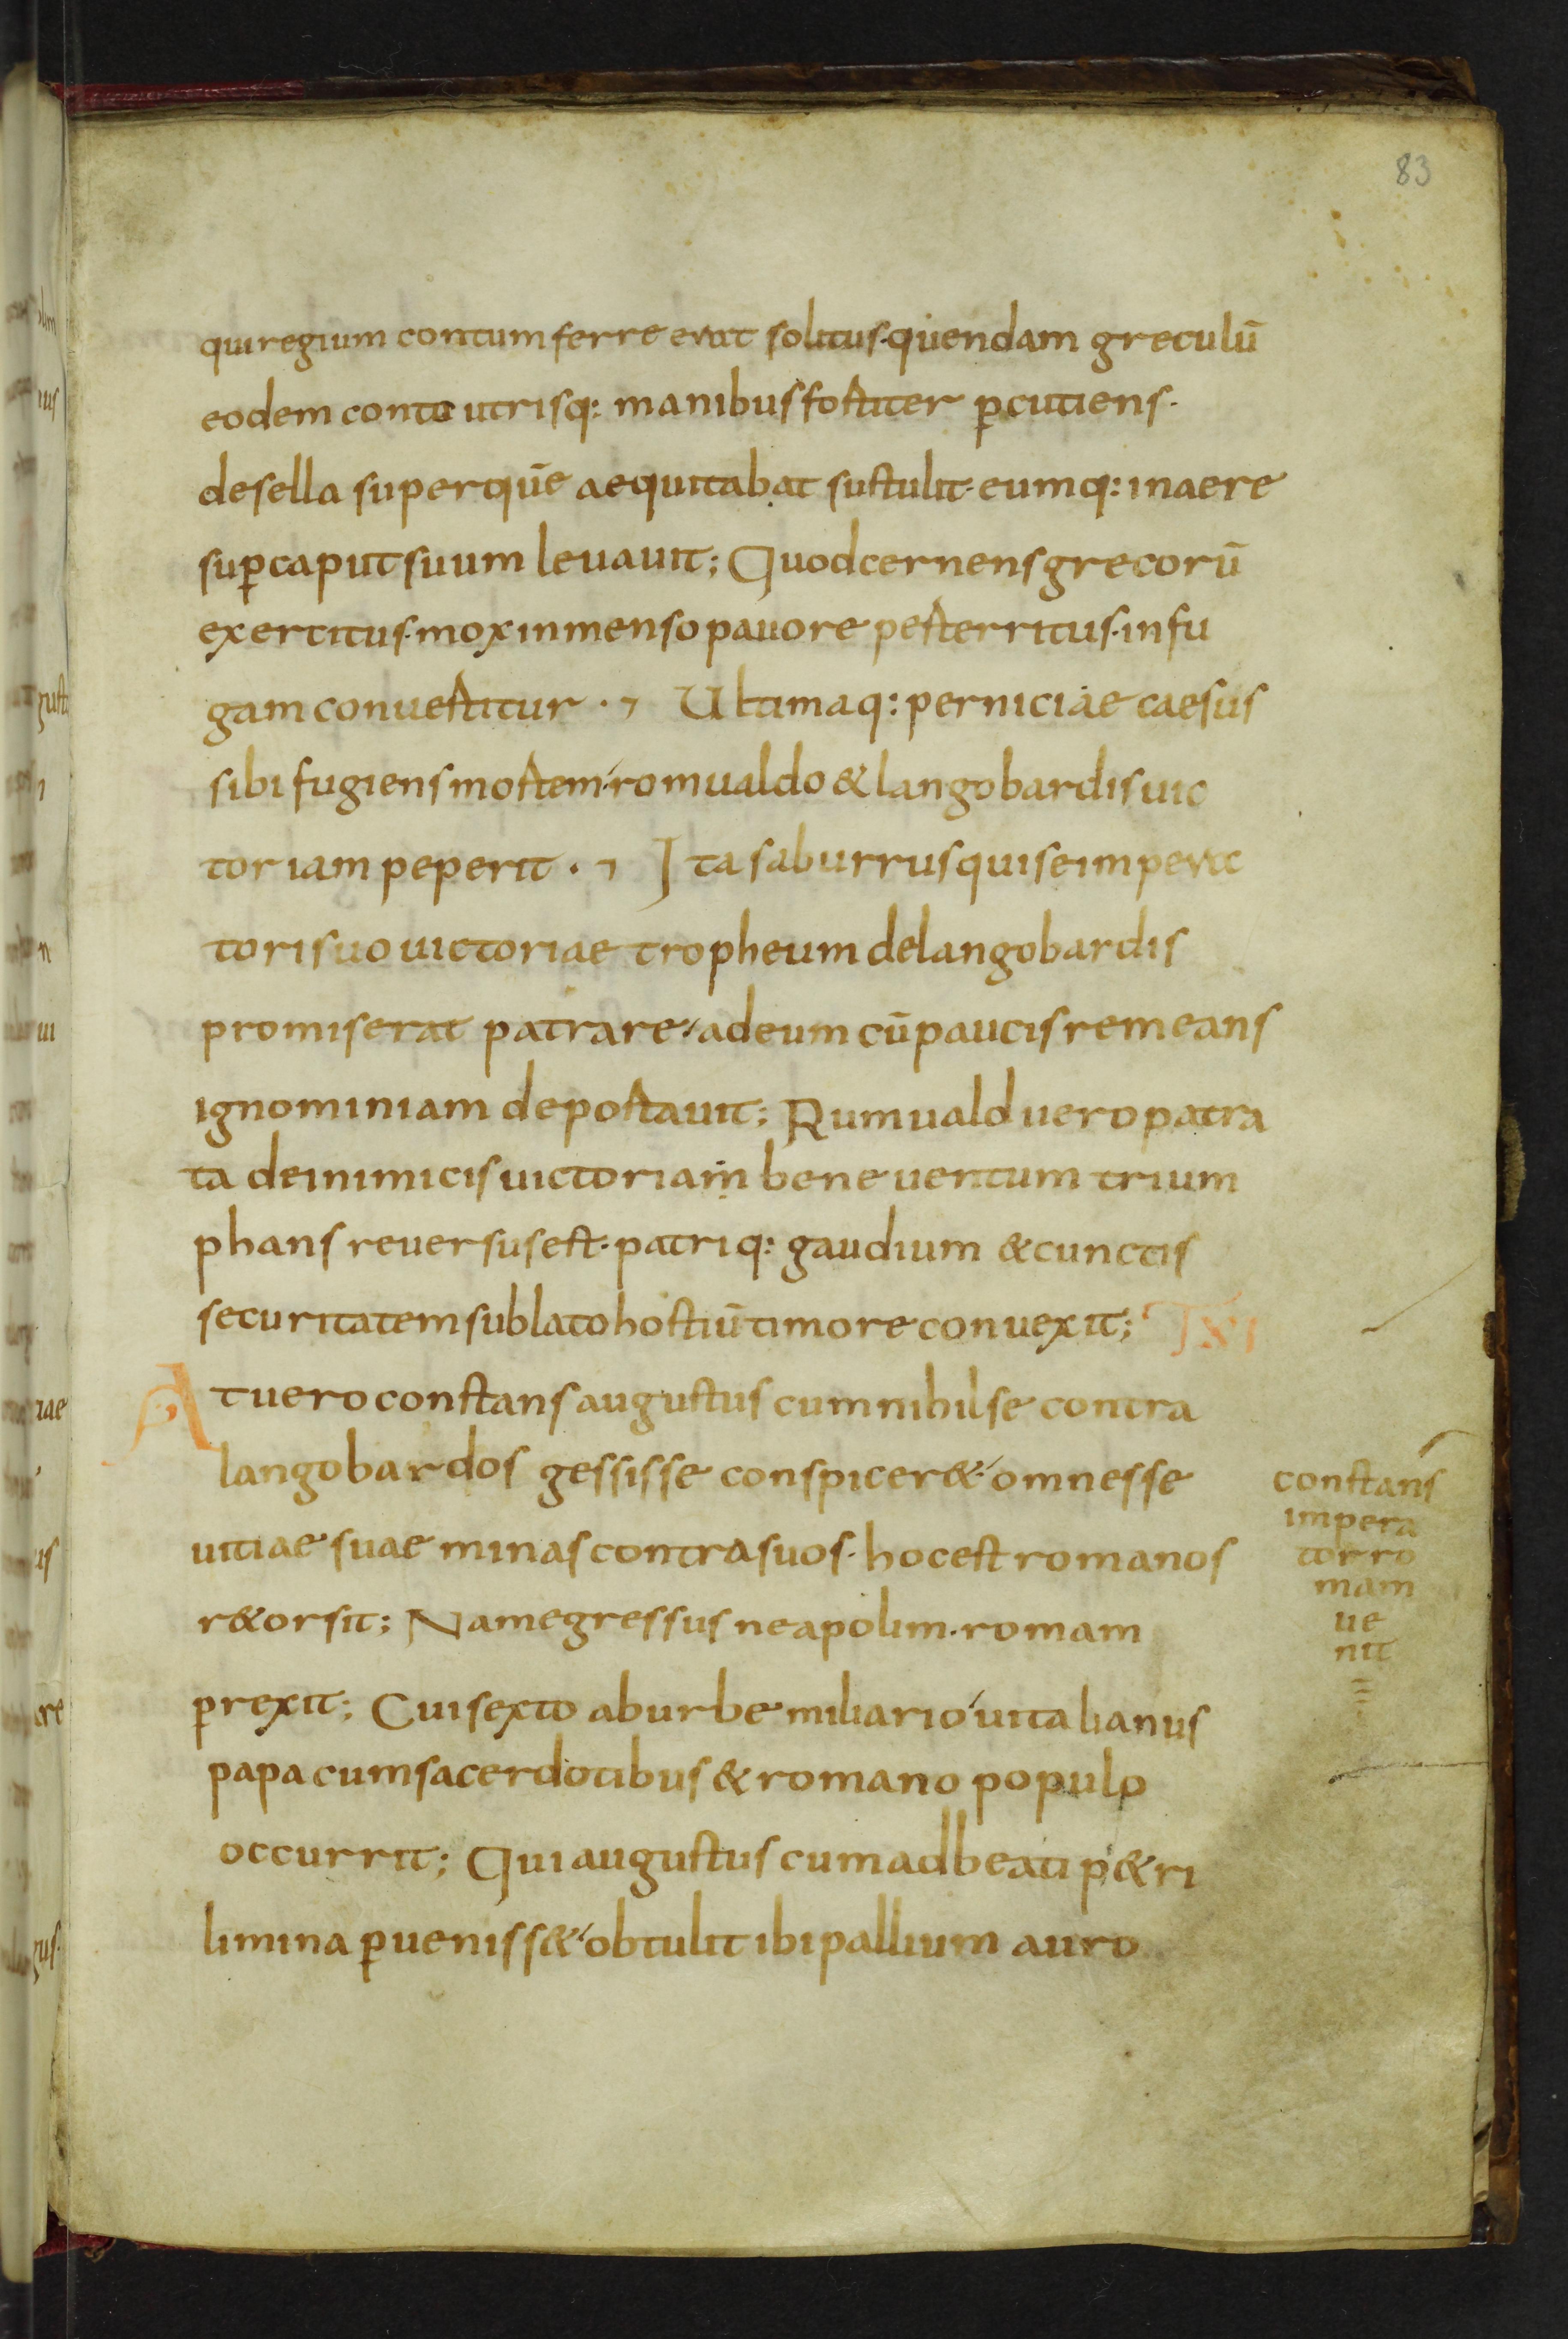 83
qui regium contum ferre erat solitus· quendam greculū
eodem conto utrisq: manibus fortiter ꝑcutiens·
de sella super quē aequitabat sustulit· eumq: in aere
suꝑ caput suum leuauit; Quod cernens grecorū
exertitus· mox inmenso pauore perterritus· in fu
gam conuertitur · ⁊ Ultimaq: perniciae caesus
sibi fugiens mortem· romualdo & langobardis uic
toriam peperit · ⁊ Ita saburrus qui se impera
tori suo uictoriae tropheum de langobardis
promiserat patrare· ad eum cū paucis remeans
ignominiam deportauit; Rumuald uero patra
ta de inimicis uictoriam beneuentum trium
phans reuersus est· patriq: gaudium & cunctis
securitatem sublato hostiū timore conuexit; XI
At uero constans augustus cum nihil se contra
langobardos gessisse conspicer&· omnes se
uitiae suae minas contra suos· hoc est romanos
r&orsit; Nam egressus neapolim· romam
ꝑrexit; Cui sexto ab urbe miliario uitalianus
papa cum sacerdotibus & romano populo
occurrit; Qui augustus cum ad beati p&ri
limina ꝑueniss&· obtulit ibi pallium auro
constans
impera
tor ro
mam
ue
nit